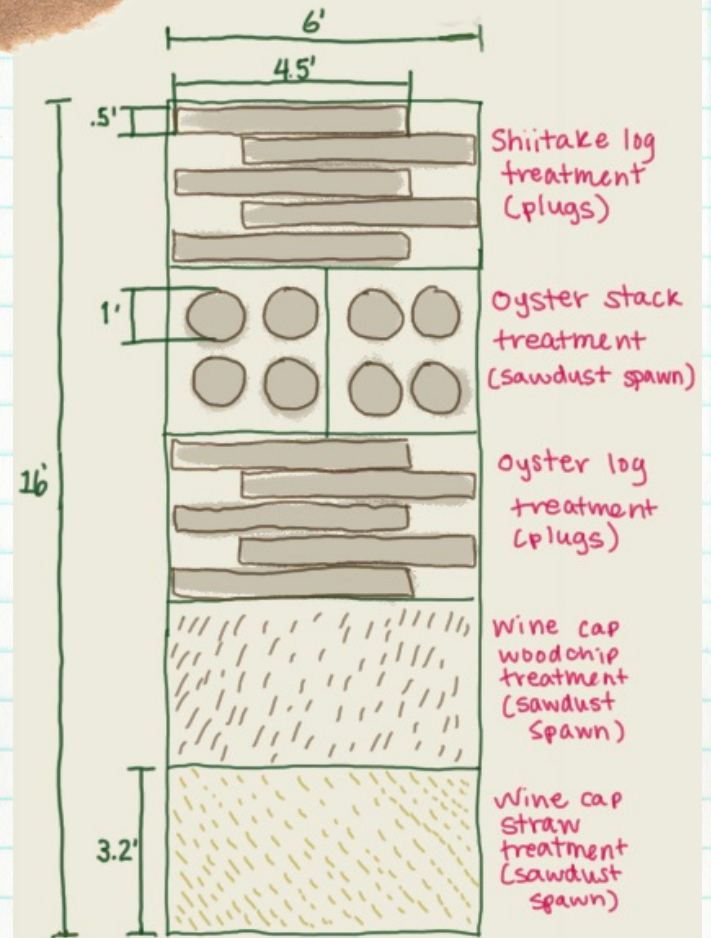 6'
4.5'
.5'
Shiitake log
treatment
(plugs)
1'
Oyster stack
treatment
(sawdust spawn)
16'
Oyster log
treatment
(plugs)
Wine cap
woodchip
treatment
(sawdust
spawn)
3.2'
Wine cap
straw
treatment
(sawdust
spawn)